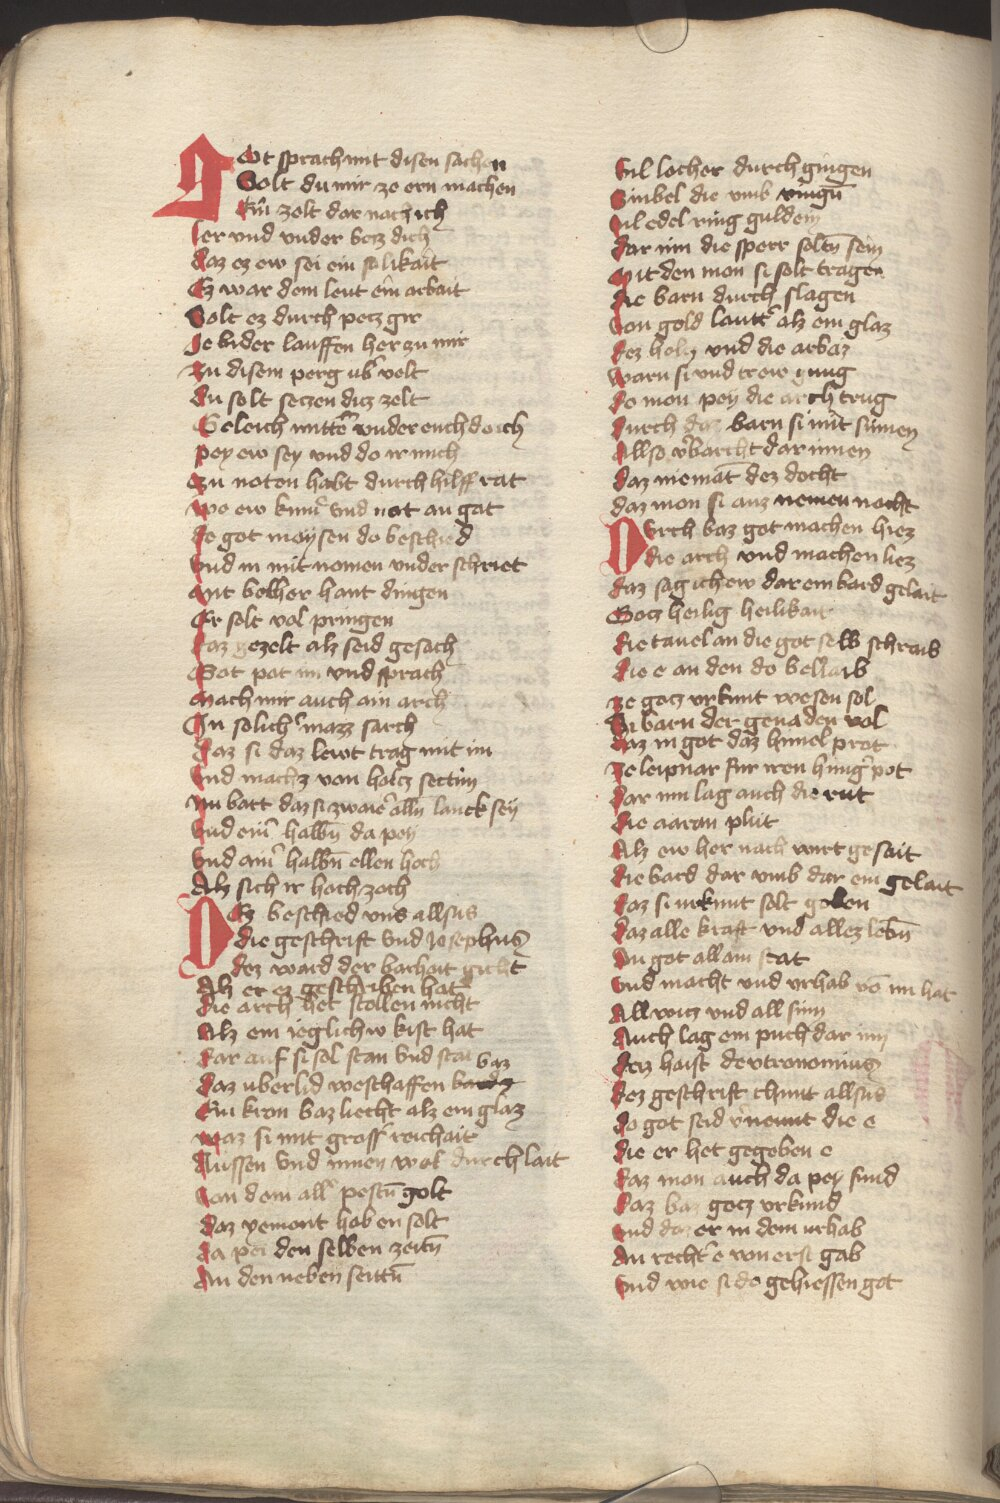 Got sprach mit disen sachen
Solt du mir ze ern machen
Ein zelt dar nach ich
ler vnd vnder beiz dich
daz ez ew sei ein salikait
Ez war dem leut ein arbait
Solt ez durch petz gir
Je bider lauffen her zu mir
Zu disem perg vb̕ velt
du solt setzen ditz zelt
Geleich mittē vnder euch doich
pey ew sey vnd do ir mich
Zu noten habt durch hilff rat
wo ew kum̄ vnd not an gat
do got moysen do beschied
vnd in mit nomen vnder schriet
Mit belher hant dingen
Er solt vol pringen
daz gezelt alz seid gesach
Got pat im vnd sprach
Mach mir auch ain arch
In solich̕ mazz sarch
daz si daz lewt trag mit im
vnd machz von holcz settim
Nu batt daz si zwair̕ alln̄ lanck sey
vnd ein̕ halbn̄ da pey
vnd ain̕ halbn̄ ellen hoch
Alz sich ir hoch zoch
Dez beschied vns allsus
die geschrift vnd Josephus
dez ward der barhait gicht
Alz er ez geschriben hat
die arch het stollen nicht
Alz ein ieglichw kist hat
dar auf si sol stan vnd stat
baz
daz uberlid weschaffen
Ein kron baz liecht alz ein glaz
waz si mit gross̕ reichait
Aussen vnd innen wol durch lait
von dem all̕ pestn̄ golt
daz yemont haben solt
da pei den selben zeitn̄
An den neben seittn̄
Vil locher durch gingen
Sinbel die vmb vingn̄
vil edel ring guldein
dar inn die sperr soltn̄ sein
Mit den mon si solt tragen
die barn durch slagen
von gold laut̕ alz ein glaz
dez holtz vnd die arbaz
warn si vnd trew gnug
do mon pey die arch trug
durch daz barn si mit sinnen
Allso v̕barcht dar innen
daz niemāt dez docht
daz mon si auz nemen nocht
Durch baz got machen hiez
die arch vnd machen liez
daz sag ich ew dar ein bard gelait
Gotz heilig heilikait
die tauel an die got selb schraib
die e an den do bellaib
ze gotz vrkunt wesen sol
Si barn der genaden vol
daz in got daz himel prot
ze leipnar fur iren hung̕ pot
dar inn lag auch die rut
die aaron plut
Alz ew her nach wirt gesait
die bard dar vmb dar ein gelait
daz si vrkunt solt geben
daz alle kraft vnd allez lebn̄
An got allain stat
vnd macht vnd vrhab vō im hat
All witz vnd all sinn
Auch lag ein puch dar inn
daz haist devtronomius
dez geschrift chunt allsus
do got seid v̕neunt die e
die er het gegeben e
daz mon auch da pey fund
daz baz gotz vrkund
vnd daz er in dem vrhab
An recht̕ e von erst gab
vnd wie si do gehiessen got